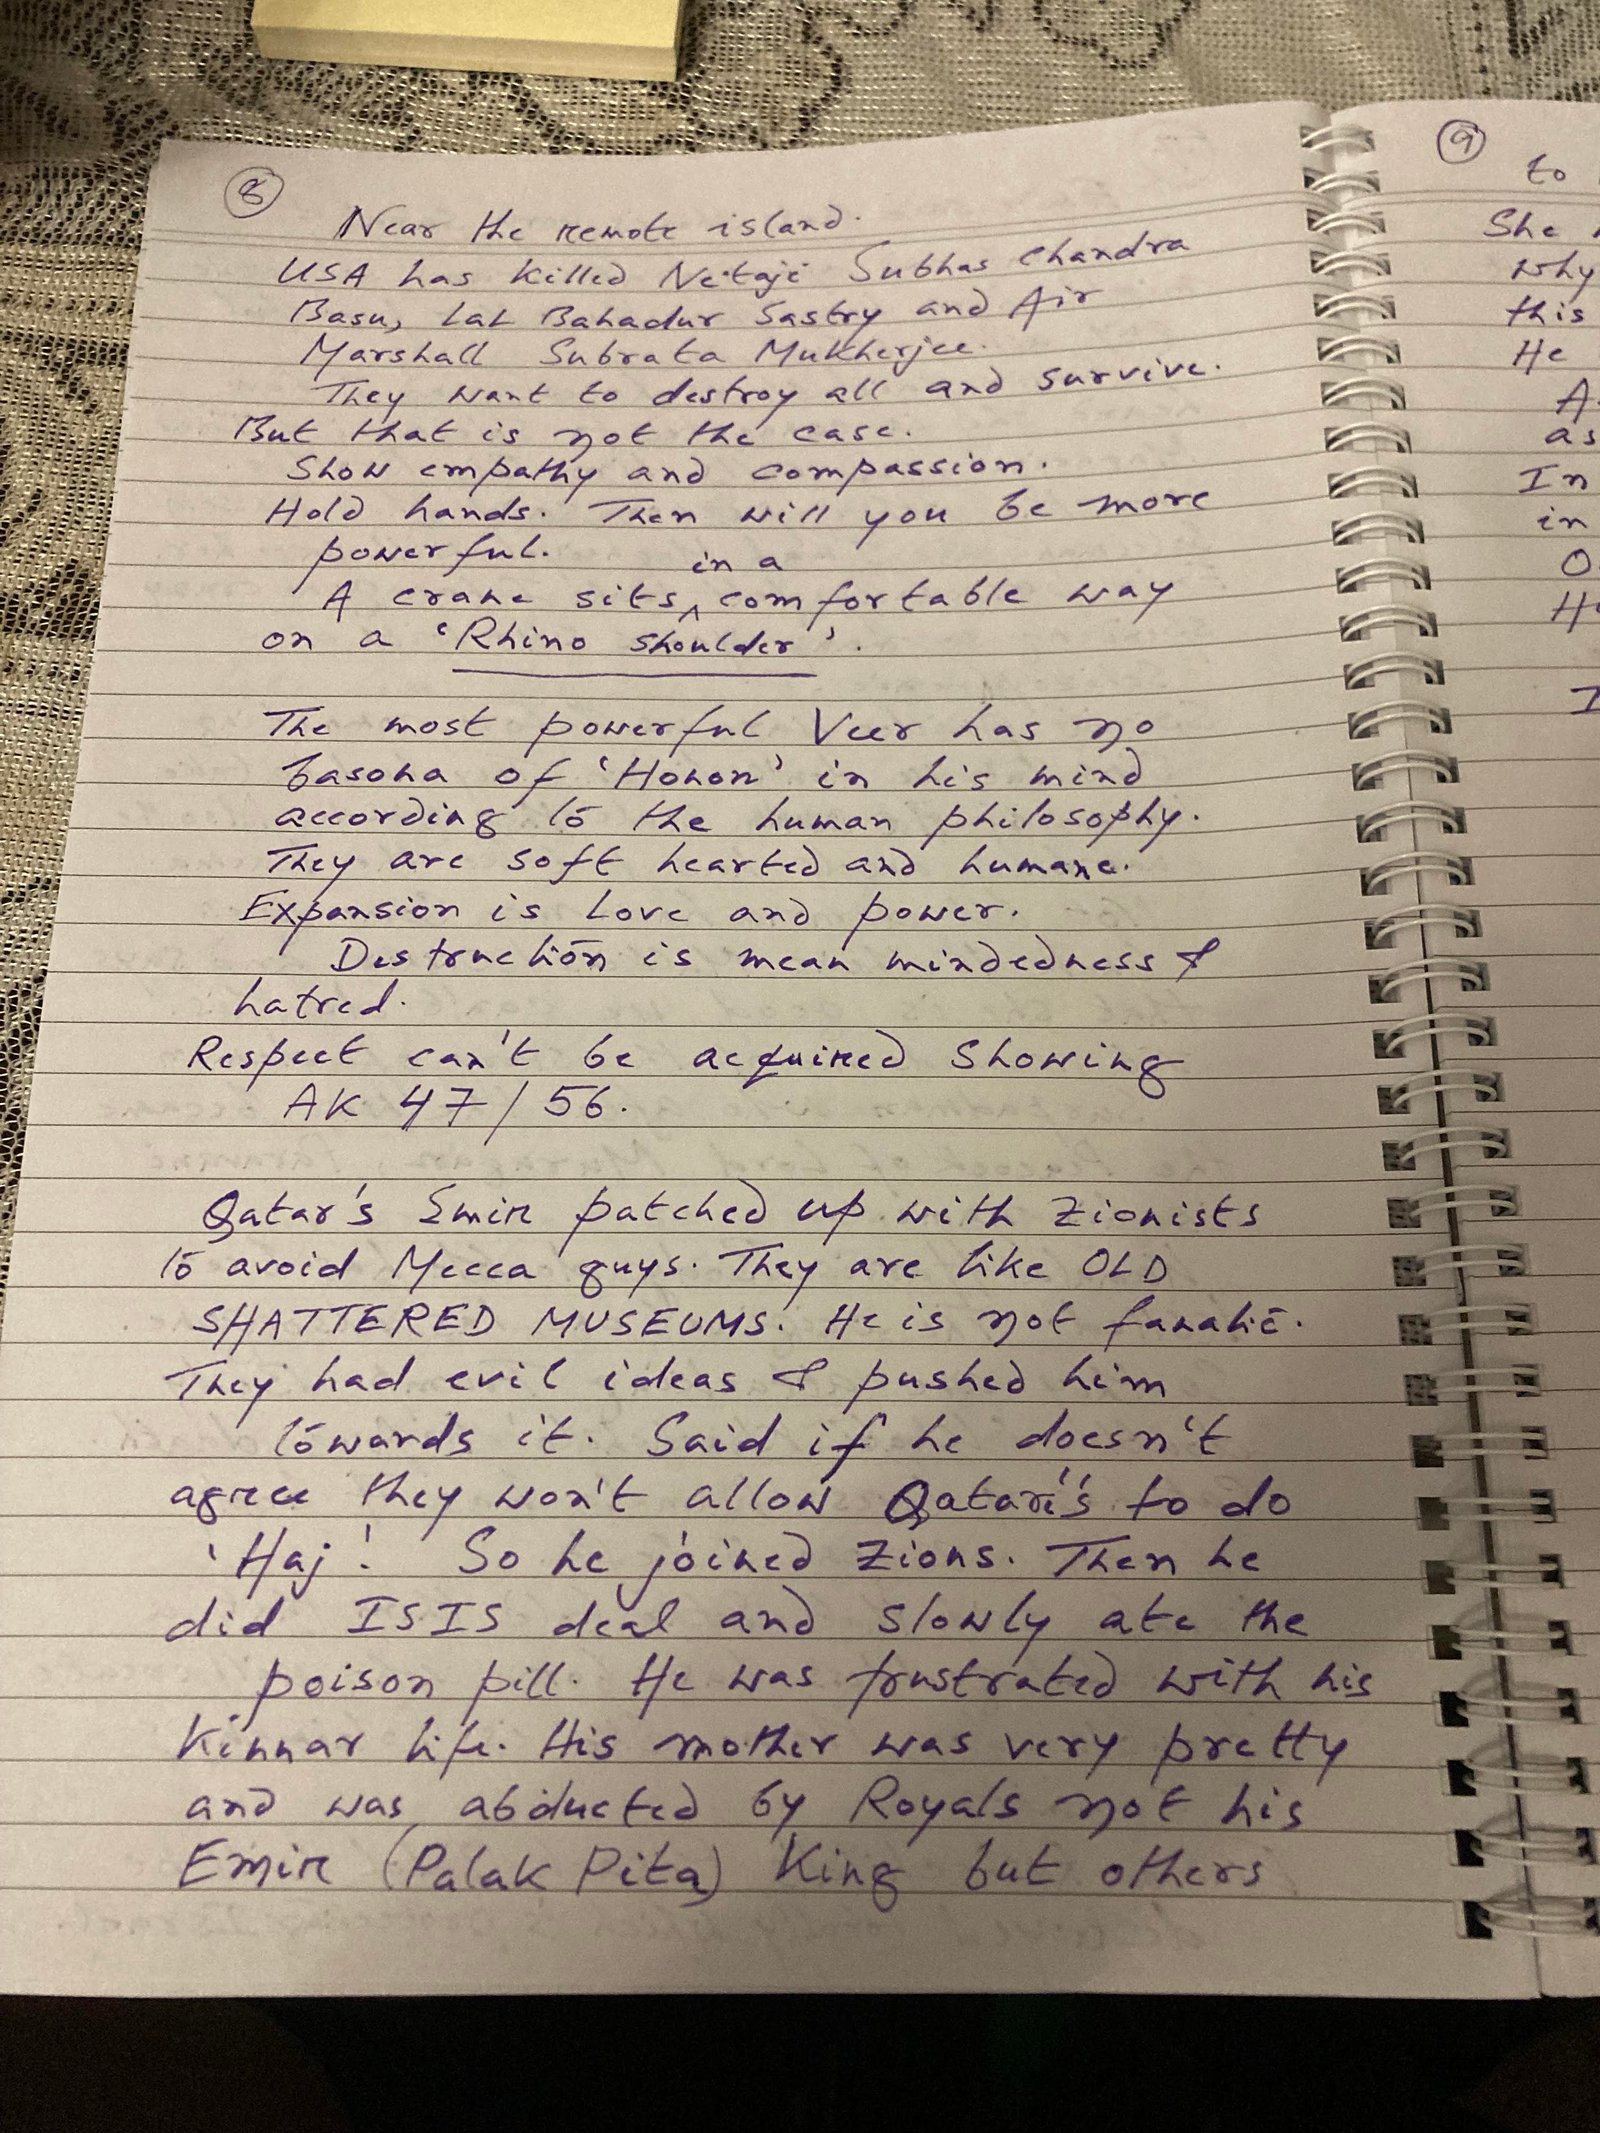 8
Near the remote island.
USA has killed Netaji Subhas Chandra
Basu, Lal Bahadur Sastry and Air
Marshall Subrata Mukherjee.
They want to destroy all and survive.
But that is not the case.
Show empathy and compassion.
Hold hands. Then will you be more
powerful.
A crane sits in a comfortable way
on a 'Rhino shoulder'.
The most powerful Veer has no
basona of 'Honon' in his mind
according to the human philosophy.
They are soft hearted and humane.
Expansion is Love and power.
Destruction is mean mindedness &
hatred.
Respect can't be acquired showing
AK 47/56.
Qatar's Emir patched up with Zionists
to avoid Mecca guys. They are like OLD
SHATTERED MUSEUMS. He is not fanatic.
They had evil ideas & pushed him
towards it. Said if he doesn't
agree they won't allow Qatari's to do
'Haj'. So he joined Zions. Then he
did ISIS deal and slowly ate the
poison pill. He was frustrated with his
Kinnar life. His mother was very pretty
and was abducted by Royals not his
Emir (Palak Pita) King but others
9
to
She
why
this
He
A
as
In
in
O
H
I